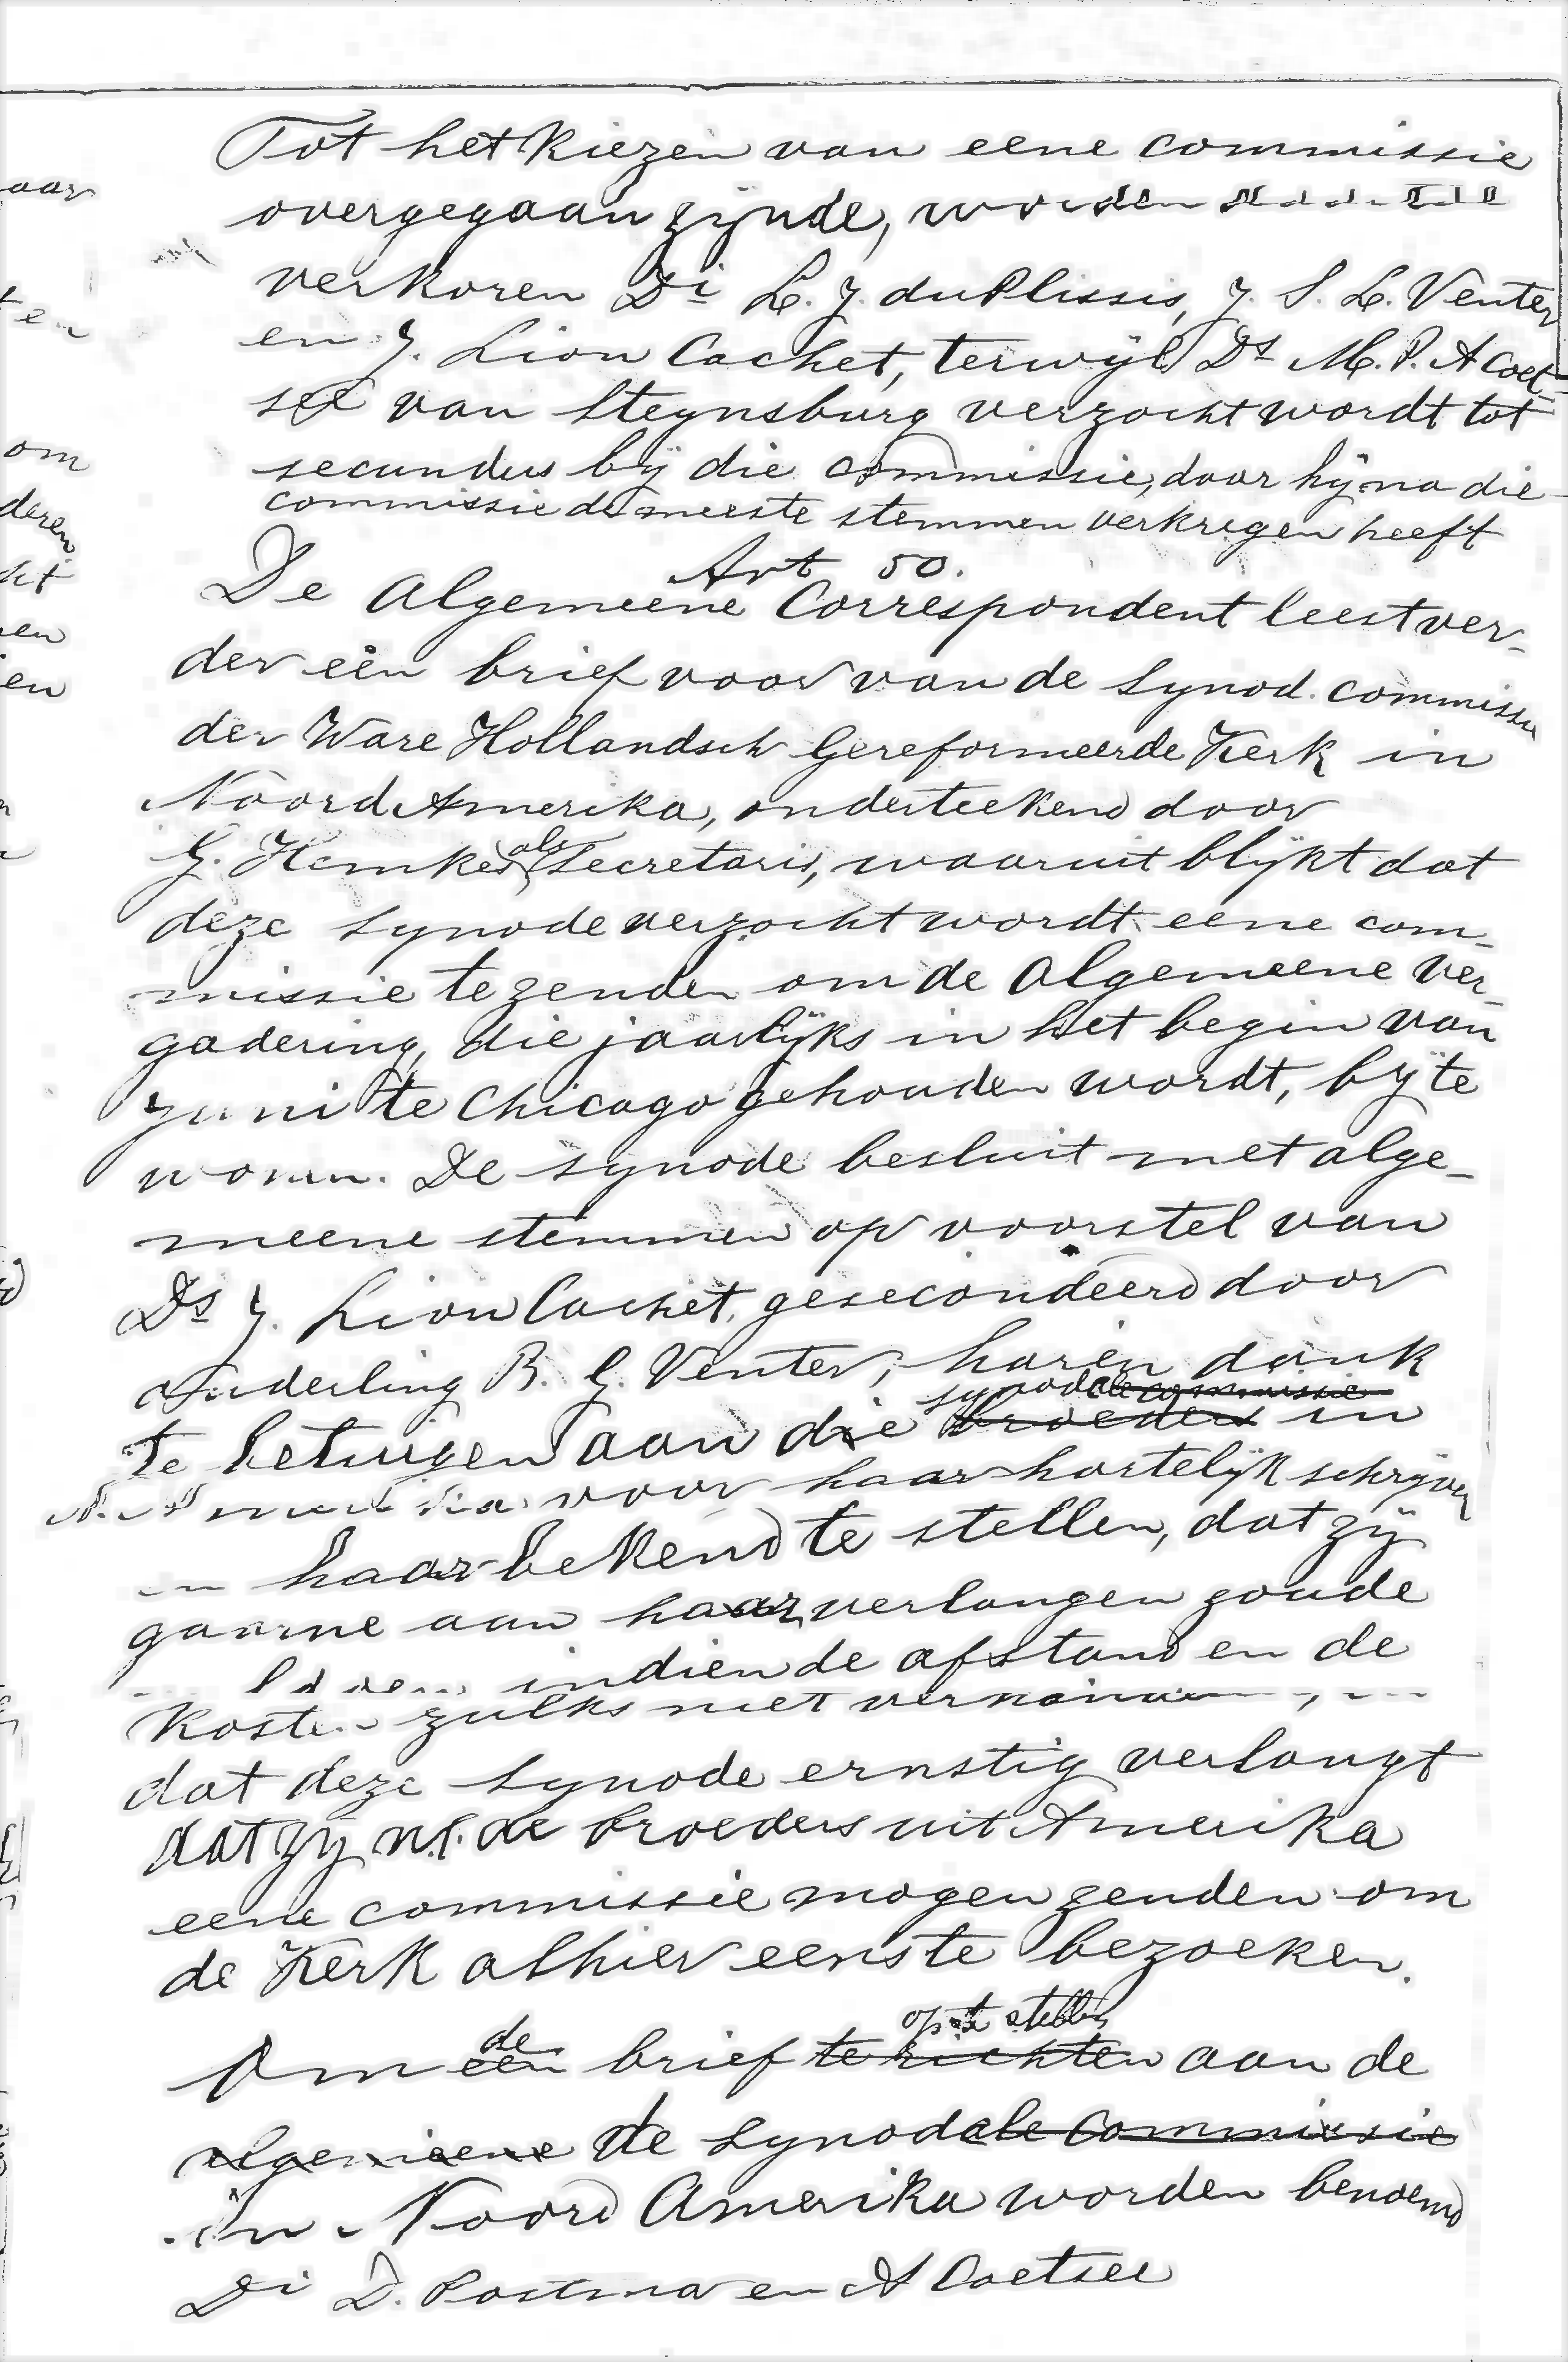 Tot het kiezen van eene commissie
overgegaan zijnde, worden
verkoren Di L. J. du Plissis, J. S. L. Venter
en J. Lion Cachet, terwijl Ds M. P. A Coet-
see van Steynsburg verzocht wordt tot
secundus bij die commissie, daar hij na die
commissie de meeste stemmen verkregen heeft
Art 50.
De Algemeene Correspondent leest ver-
der een brief voor van de Synod. commissie
der Ware Hollandsch Gereformeerde Kerk in
Noord Amerika, onderteekend door
G. Hemkes als Secretaris, waaruit blijkt dat
deze Synode verzocht wordt eene com-
missie te zenden om de Algemeene Ver-
gadering, die jaarlijks in het begin van
Juni te Chicago gehouden wordt, bij te
wonen. De Synode besluit met alge-
meene stemmen op voorstel van
Ds J. Lion Cachet, gesecondeerd door
Ouderling B. G. Venter, haren dank
synodale commissie
te betuigen aan die broeders in
N. Amerika voor haar hartelijk schrijven
en haar bekend te stellen, dat zij
gaarne aan haar verlangen zoude
indien de afstand en de
kosten zulks niet
dat deze Synode ernstig verlangt
dat zij n.l. de broeders uit Amerika
eene commissie mogen zenden om
de Kerk alhier eens te bezoeken.
de op te stellen
Om een brief te richten aan de
algemeene de Synodale Commissie
in Noord Amerika worden benoemd
Di D. Postma en A Coetsee
aar
ten
om
deren